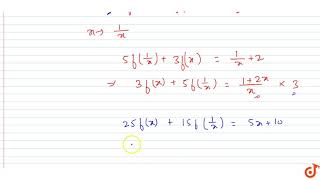 x → 1/x
5f(1/x) + 3f(x) = 1/x + 2
⇒ 3f(x) + 5f(1/x) = (1+2x)/x × 3
25f(x) + 15f(1/x) = 5x + 10